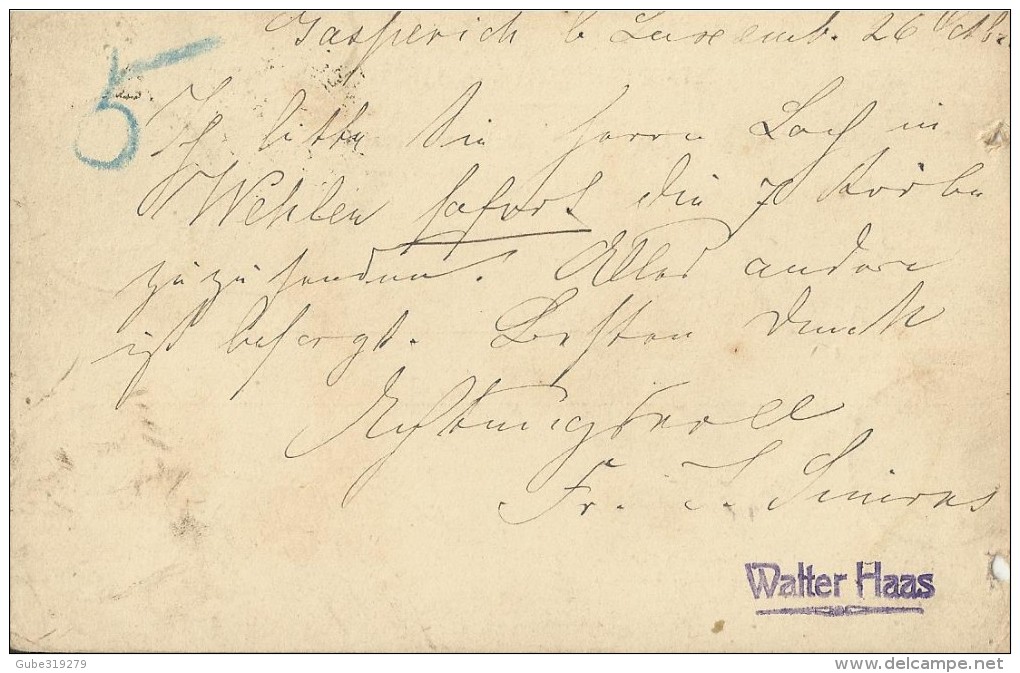 Gasperich b Luxemb. 26 Octbr
5
Ich bitte Sie Herrn Loch in
Wehlen sofort die 7 Körbe
zuzusenden. Alles andere
ist besorgt. Besten Dank
Achtungsvoll
Fr. J.
Walter Haas
Gube319279
delcampe.net